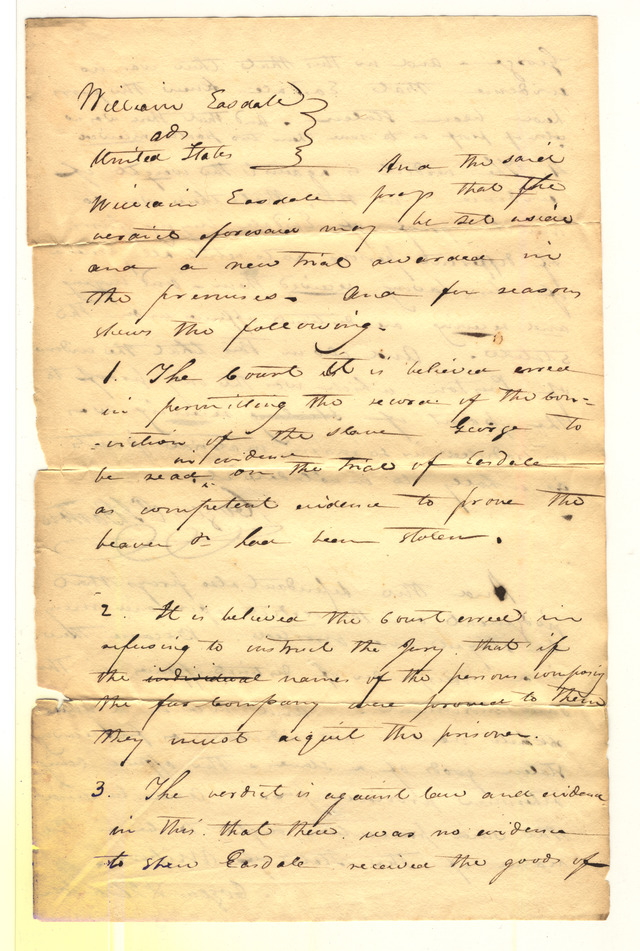 William Easdale
ads
United States
And the said
William Easdale prays that the
verdict aforesaid may be set aside
and a new trial awarded in
the premises. And for reasons
shews the following.
1. The Court it is believed erred
in permitting the record of the con-
-viction of the slave George to
in evidence
be read on the trial of Easdale
as competent evidence to prove the
beaver &c had been stolen.
2. It is believed the Court erred in
refusing to instruct the Jury that if
the individual names of the persons composing
the fur Company were proved to them
they must acquit the prisoner.
3. The verdict is against law and evidence
in this. that there was no evidence
to shew Easdale received the goods of